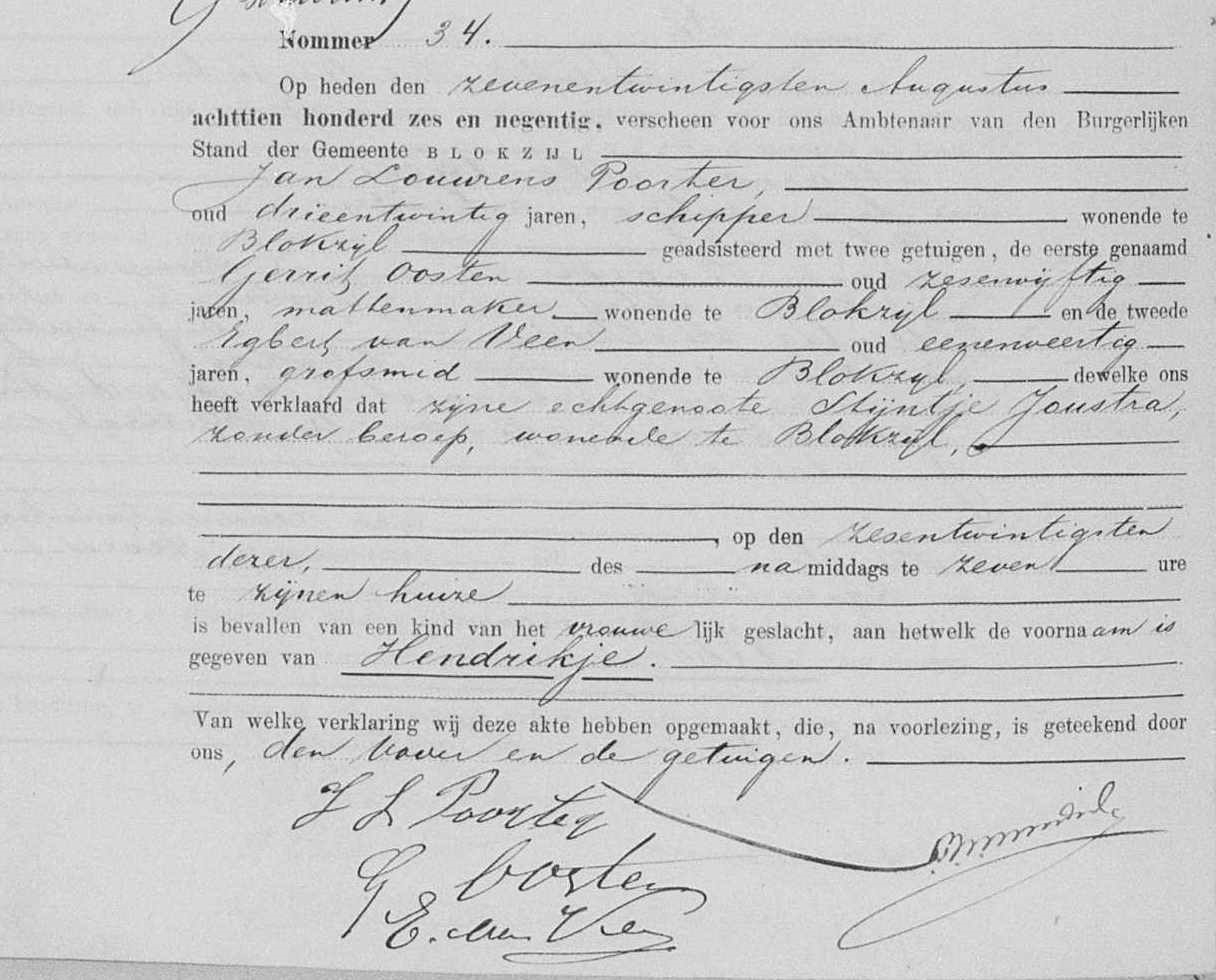 Nommer 34.
Op heden den zevenentwintigsten Augustus
achttien honderd zes en negentig, verscheen voor ons Ambtenaar van den Burgerlijken
Stand der Gemeente BLOKZIJL
Jan Louwrens Poorter,
oud drieentwintig jaren, schipper wonende te
Blokzyl geadsisteerd met twee getuigen, de eerste genaamd
Gerrit Oosten oud zesenvyftig
jaren, mattenmaker wonende te Blokzyl en de tweede
Egbert van Veen oud eenenveertig
jaren, grofsmid wonende te Blokzyl, dewelke ons
heeft verklaard dat zyne echtgenoote Stijntje Joustra,
zonder beroep, wonende te Blokzyl,
, op den zesentwintigsten
dezer, des na middags te zeven ure
te zijnen huize
is bevallen van een kind van het vrouwe lijk geslacht, aan hetwelk de voornaam is
gegeven van Hendrikje.
Van welke verklaring wij deze akte hebben opgemaakt, die, na voorlezing, is geteekend door
ons, den vader en de getuigen.
J L Poorter
G Oosten
E. van Veen